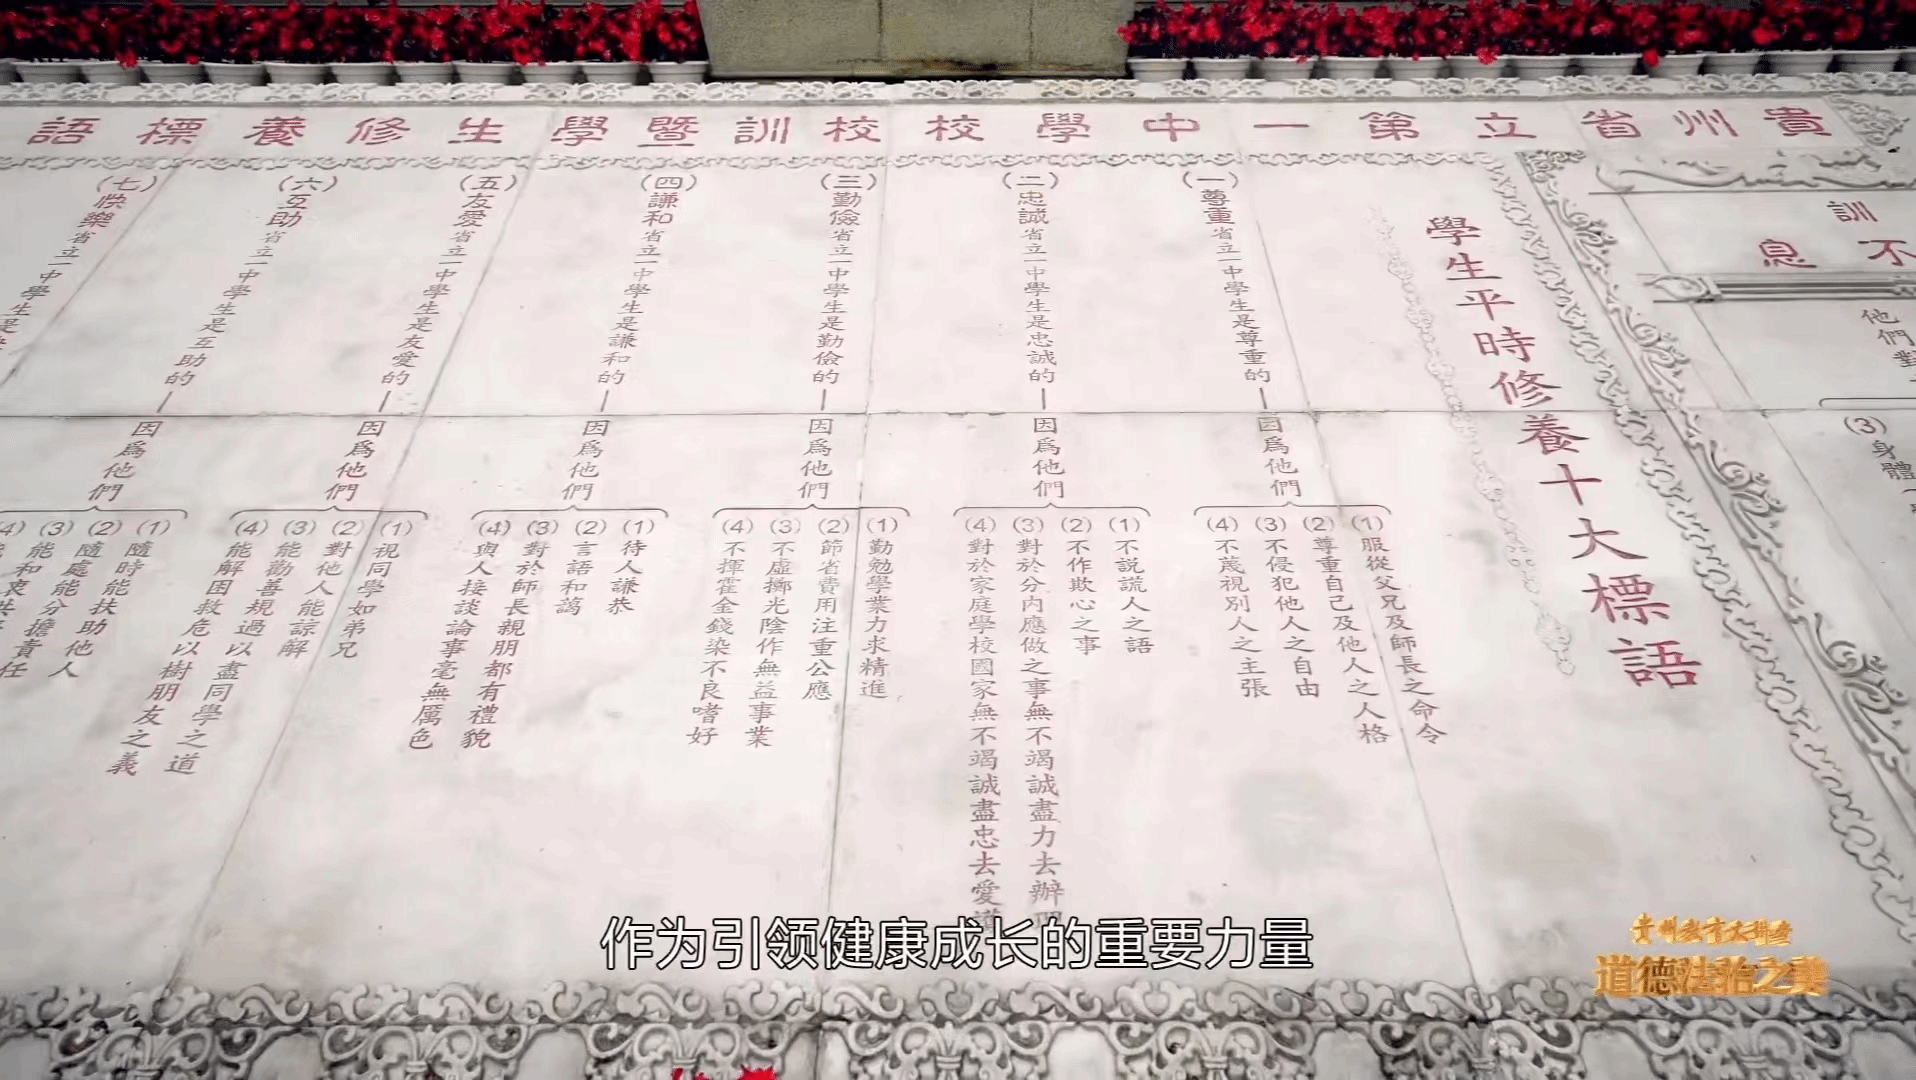 貴州省立第一中學校校訓暨學生修養標語
訓
不息
他們對
(3)身體
學生平時修養十大標語
(一)尊重省立一中學生是尊重的—因爲他們
(1)服從父兄及師長之命令
(2)尊重自己及他人之人格
(3)不侵犯他人之自由
(4)不蔑視別人之主張
(二)忠誠省立一中學生是忠誠的—因爲他們
(1)不説謊人之語
(2)不作欺心之事
(3)對於分内應做之事無不竭誠盡力去辦
(4)對於家庭學校國家無不竭誠盡忠去愛護
(三)勤儉省立一中學生是勤儉的—因爲他們
(1)勤勉學業力求精進
(2)節省費用注重公應
(3)不虛擲光陰作無益事業
(4)不揮霍金錢染不良嗜好
(四)謙和省立一中學生是謙和的—因爲他們
(1)待人謙恭
(2)言語和藹
(3)對於師長親朋都有禮貌
(4)與人接談論事毫無厲色
(五)友愛省立一中學生是友愛的—因爲他們
(1)視同學如弟兄
(2)對他人能諒解
(3)能勸善規過以盡同學之道
(4)能解困救危以樹朋友之義
(六)互助省立一中學生是互助的—因爲他們
(1)隨時能扶助他人
(2)隨處能分擔責任
(3)能和衷共
(4)
(七)快樂省立一中學生是
作为引领健康成长的重要力量
贵州教育大讲堂
道德法治之美